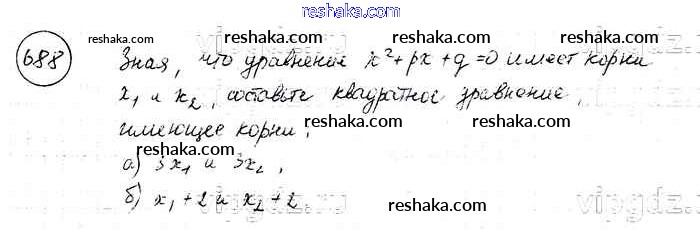 reshaka.com
688
reshaka.com reshaka.com reshaka.com
Зная, что уравнение x²+px+q=0 имеет корни
x₁ и x₂, составьте квадратное уравнение,
reshaka.com reshaka.com
имеющее корни:
reshaka.com
а) 3x₁ и 3x₂,
б) x₁+2 и x₂+2.
vipgdz.ru
reshaka.com